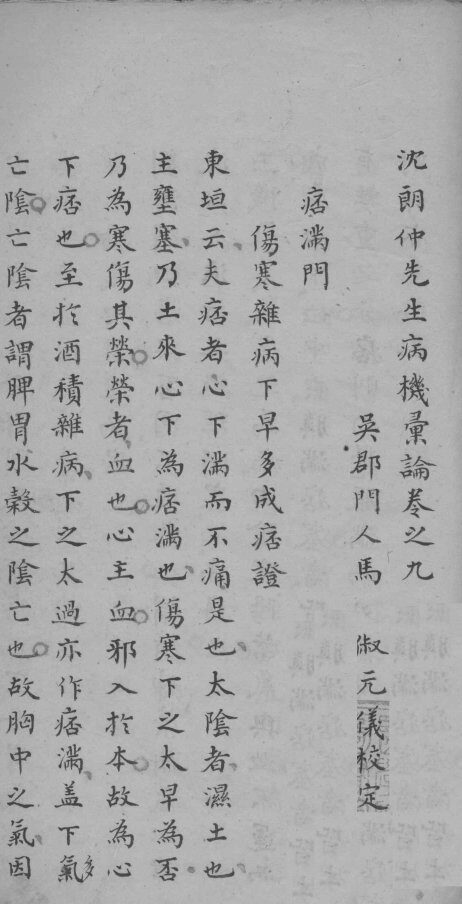 沈朗仲先生病機彚論卷之九
吳郡門人馬 俶元儀校定
痞滿門
傷寒雜病下早多成痞證
東垣云夫痞者心下滿而不痛是也太陰者濕土也
主壅塞乃土來心下為痞滿也傷寒下之太早為否
乃為寒傷其榮榮者血也心主血邪入於本故為心
下痞也至於酒積雜病下之太過亦作痞滿盖下氣多
亡陰亡陰者謂脾胃水榖之陰亡也故胸中之氣因